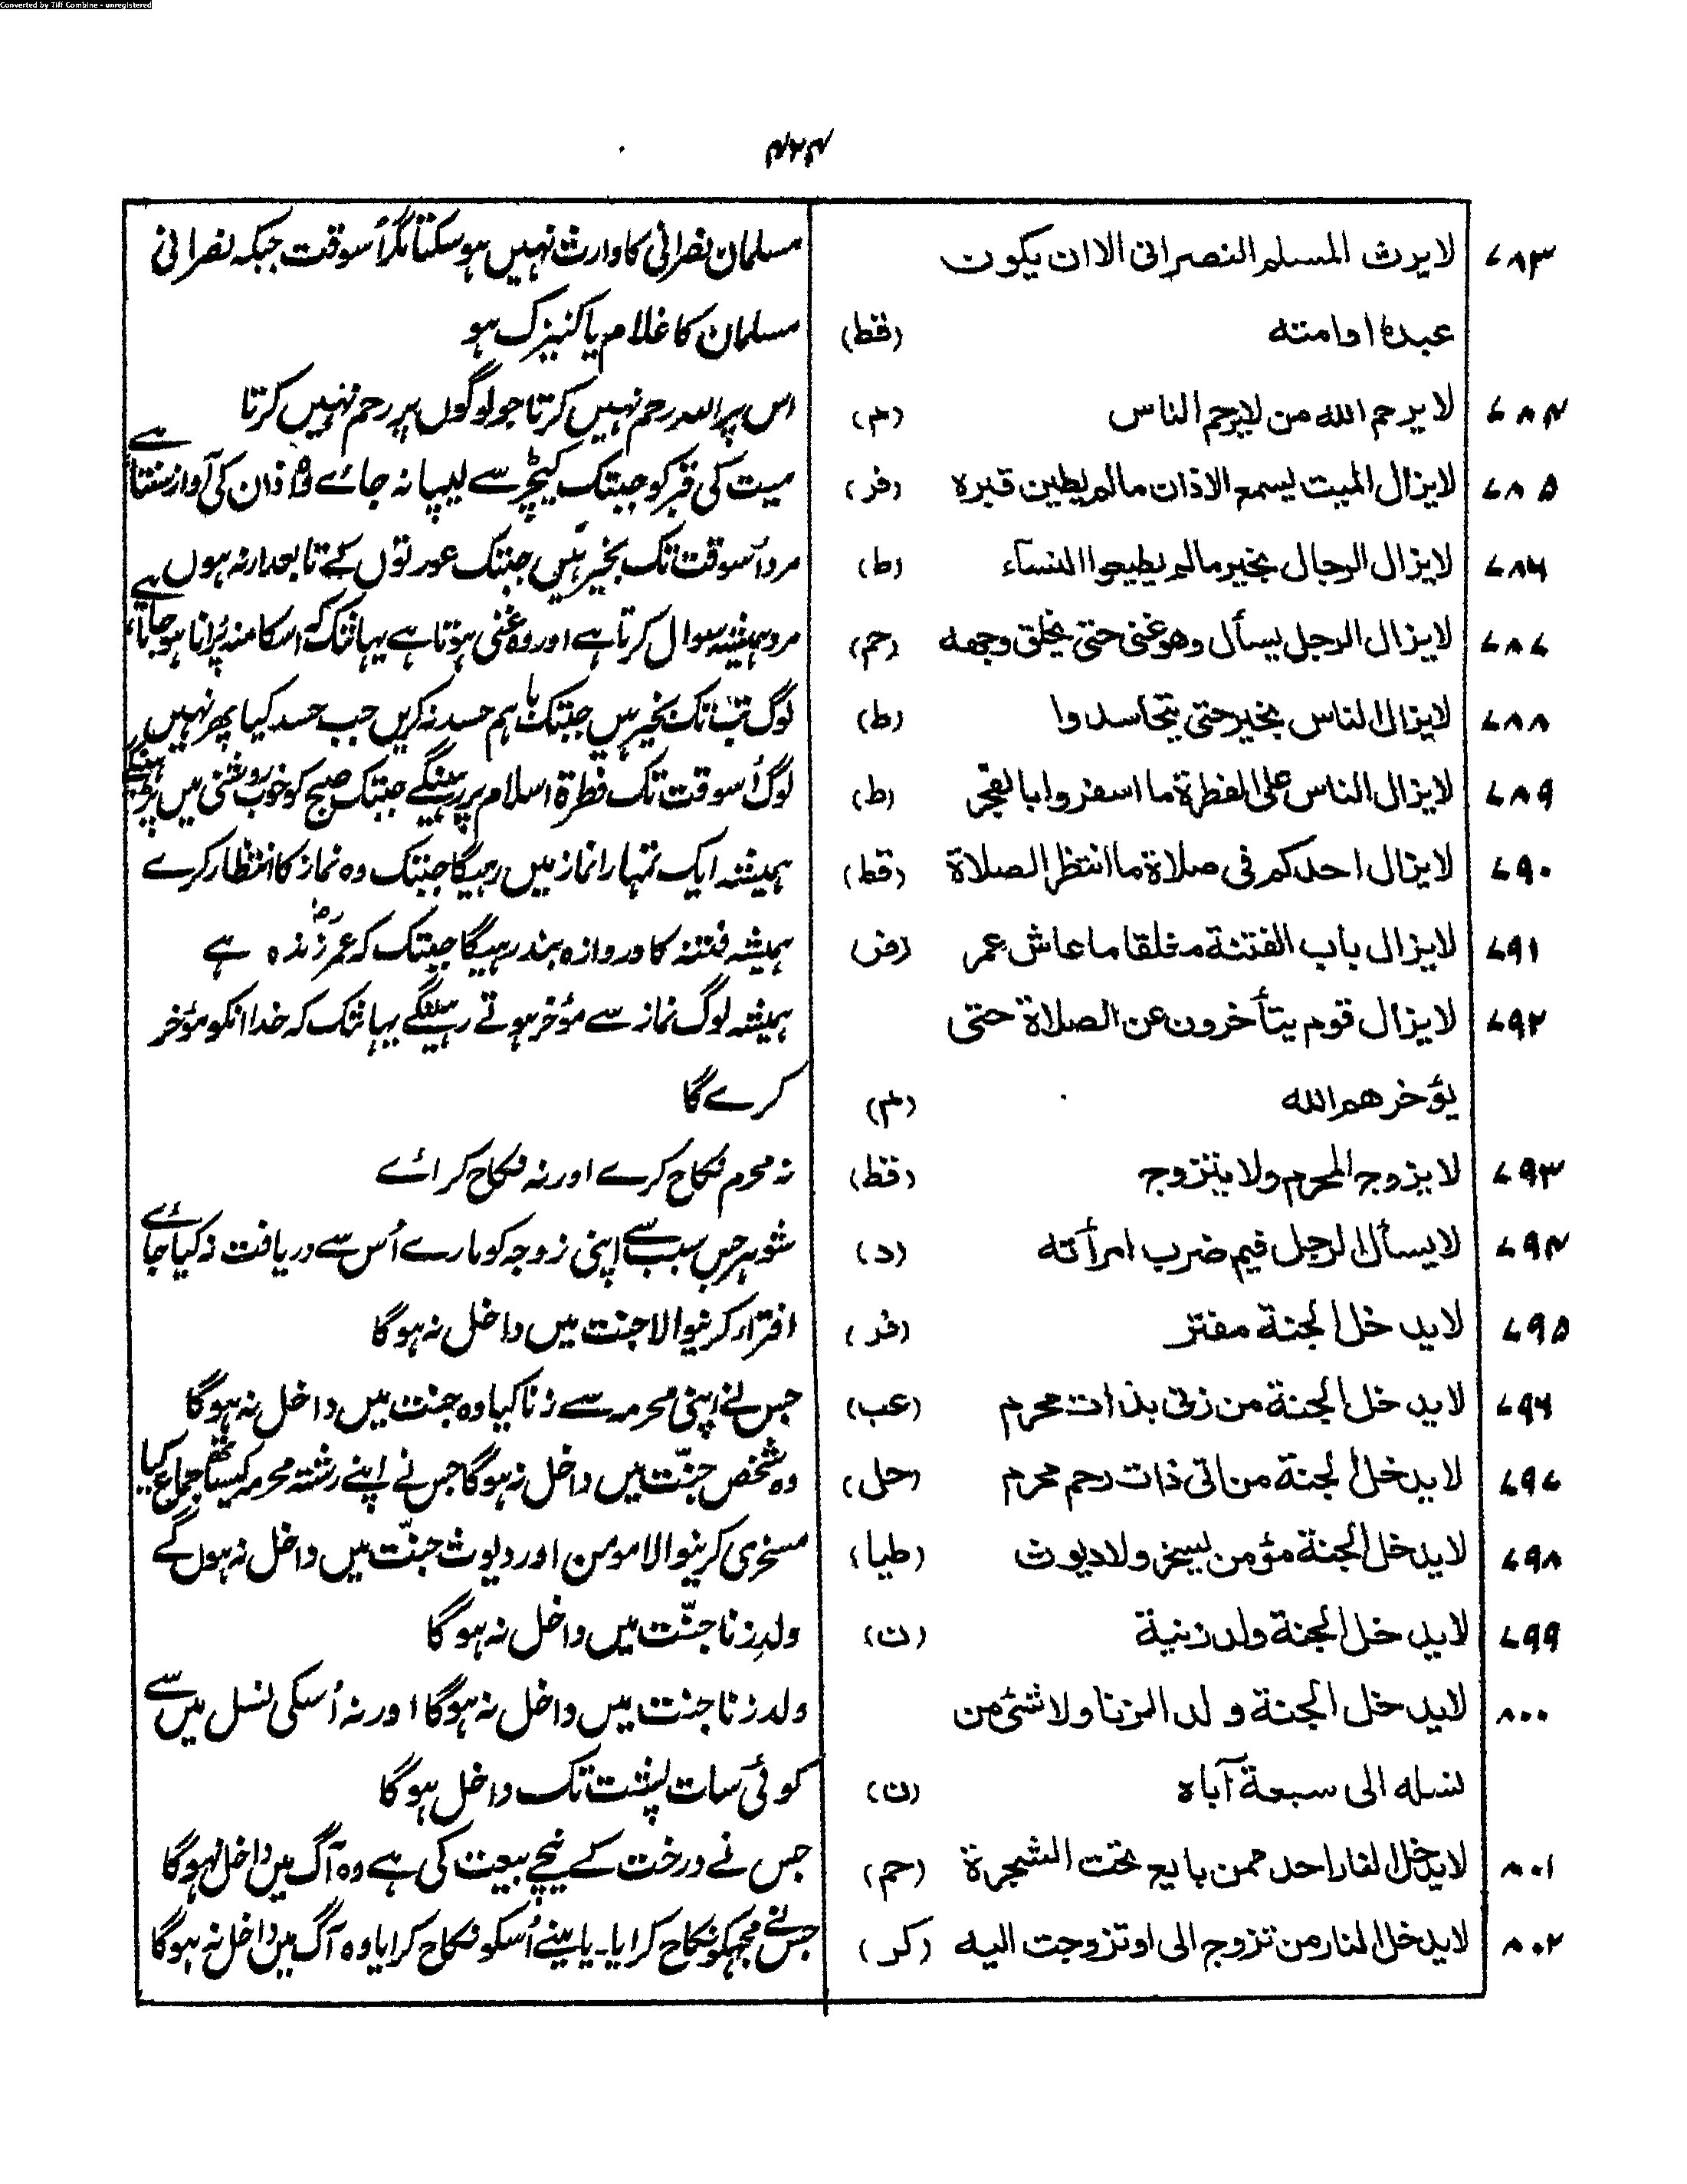 Converted by Tiff Combine - unregistered
۴۲۴
۷۸۳ لا يرث المسلم النصرانى الا ان يكون مسلمان نصرانی کا وارث نہیں ہو سکتا مگر اُسوقت جبکہ نصرانی
عبده او امته (قط) مسلمان کا غلام یا کنیزک ہو
۷۸۴ لا يرحم الله من لا يرحم الناس (م) اس پر اللہ رحم نہیں کرتا جو لوگوں پر رحم نہیں کرتا
۷۸۵ لا يزال الميت يسمع الاذان ما لم يطين قبره (فر) میت کی قبر کو جبتک کیچڑ سے لیپا نہ جائے وہ اذان کی آواز سنتا ہے
۷۸۶ لا يزال الرجال بخير ما لم يطيعوا النساء (ط) مرد اُسوقت تک بخیر ہیں جبتک عورتوں کے تابعدار نہ ہوں
۷۸۷ لا يزال الرجل يسأل وهو غنى حتى يخلق وجهه (حم) مرد ہمیشہ سوال کرتا ہے اور وہ غنی ہوتا ہے یہانتک کہ اسکا منہ پُرانا ہو جاتا ہے
۷۸۸ لا يزال الناس بخير حتى يتحاسدوا (ط) لوگ تب تک بخیر ہیں جبتک باہم حسد نہ کریں جب حسد کیا پھر نہیں
۷۸۹ لا يزال الناس على الفطرة ما اسفروا بالفجر (ط) لوگ اُسوقت تک فطرة اسلام پر رہینگے جبتک صبح کو خوب روشنی میں پڑہینگے
۷۹۰ لا يزال احدكم فى صلاة ما انتظر الصلاة (قط) ہمیشہ ایک تمہارا نماز میں رہیگا جبتک وہ نماز کا انتظار کرے
۷۹۱ لا يزال باب الفتنة مغلقا ما عاش عمر (فر) ہمیشہ فتنہ کا دروازہ بند رہیگا جبتک کہ عمرؓ زندہ ہے
۷۹۲ لا يزال قوم يتأخرون عن الصلاة حتى ہمیشہ لوگ نماز سے مؤخر ہوتے رہینگے یہانتک کہ خدا انکو مؤخر
يؤخرهم الله (م) کرے گا
۷۹۳ لا يزوج المحرم ولا يتزوج (قط) نہ محرم نکاح کرے اور نہ نکاح کرائے
۷۹۴ لا يسأل الرجل فيم ضرب امرأته (د) شوہر جس سبب سے اپنی زوجہ کو مارے اُس سے دریافت نہ کیا جائے
۷۹۵ لا يدخل الجنة مفتر (فر) افترا کرنیوالا جنت میں داخل نہ ہوگا
۷۹۶ لا يدخل الجنة من زنى بذات محرم (عب) جس نے اپنی محرمہ سے زنا کیا وہ جنت میں داخل نہ ہوگا
۷۹۷ لا يدخل الجنة من اتى ذات رحم محرم (حل) وہ شخص جنّت میں داخل نہ ہوگا جس نے اپنے رشتہ محرمہ کیساتھ جماع کیا
۷۹۸ لا يدخل الجنة مؤمن يسخر ولا ديوث (طيا) مسخری کرنیوالا مومن اور دیوث جنّت میں داخل نہ ہوں گے
۷۹۹ لا يدخل الجنة ولد زنية (ن) ولدِ زنا جنّت میں داخل نہ ہوگا
۸۰۰ لا يدخل الجنة ولد الزنا ولا شئ من ولد زنا جنت میں داخل نہ ہوگا اور نہ اُسکی نسل میں سے
نسله الى سبعة آباه (ن) کوئی سات پشت تک داخل ہوگا
۸۰۱ لا يدخل النار احد ممن بايع تحت الشجرة (حم) جس نے درخت کے نیچے بیعت کی ہے وہ آگ میں داخل نہوگا
۸۰۲ لا يدخل النار من تزوج الى او تزوجت اليه (کر) جس نے مجہکو نکاح کرایا۔ یا مینے اُسکو نکاح کرایا وہ آگ میں داخل نہ ہوگا